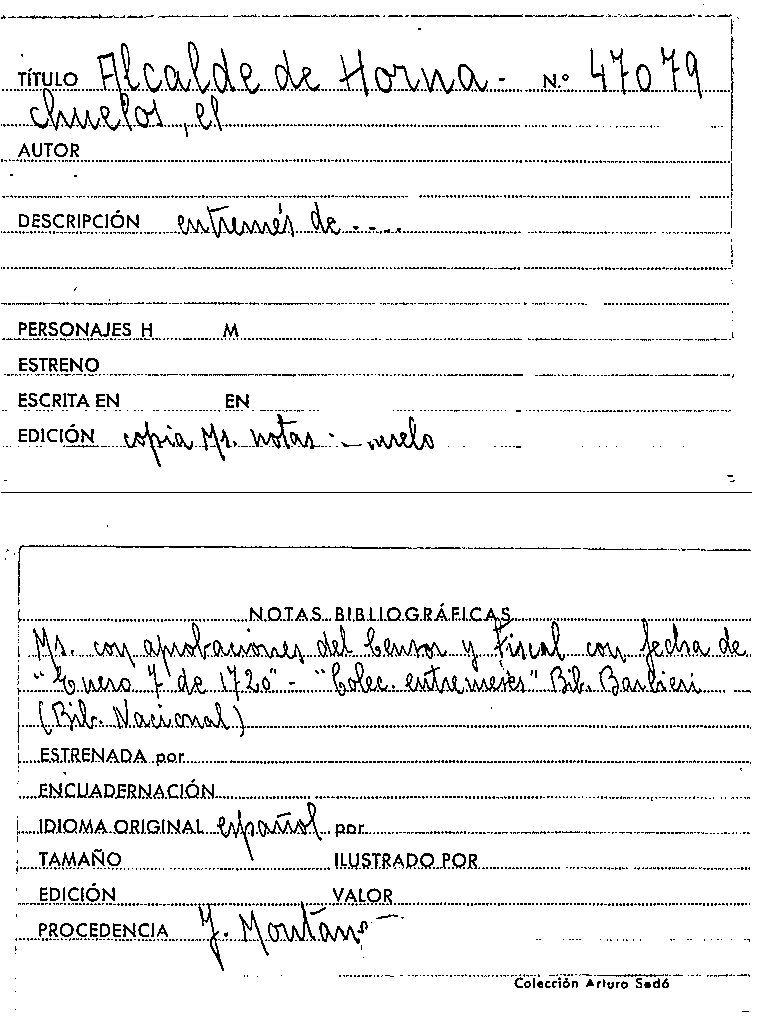 TÍTULO Alcalde de Horna- N.º 47079
chuelos, el
AUTOR
DESCRIPCIÓN entremés de ....
PERSONAJES H M
ESTRENO
ESCRITA EN EN
EDICIÓN copia Ms. notas
NOTAS BIBLIOGRÁFICAS
Ms. con aprobaciones del Censor y Fiscal con fecha de
"Enero 7 de 1720" - "Colec. entremeses" Bib. Barbieri
(Bib. Nacional)
ESTRENADA por
ENCUADERNACIÓN
IDIOMA ORIGINAL español por
TAMAÑO ILUSTRADO POR
EDICIÓN VALOR
PROCEDENCIA J. Montan
Colección Arturo Sedó